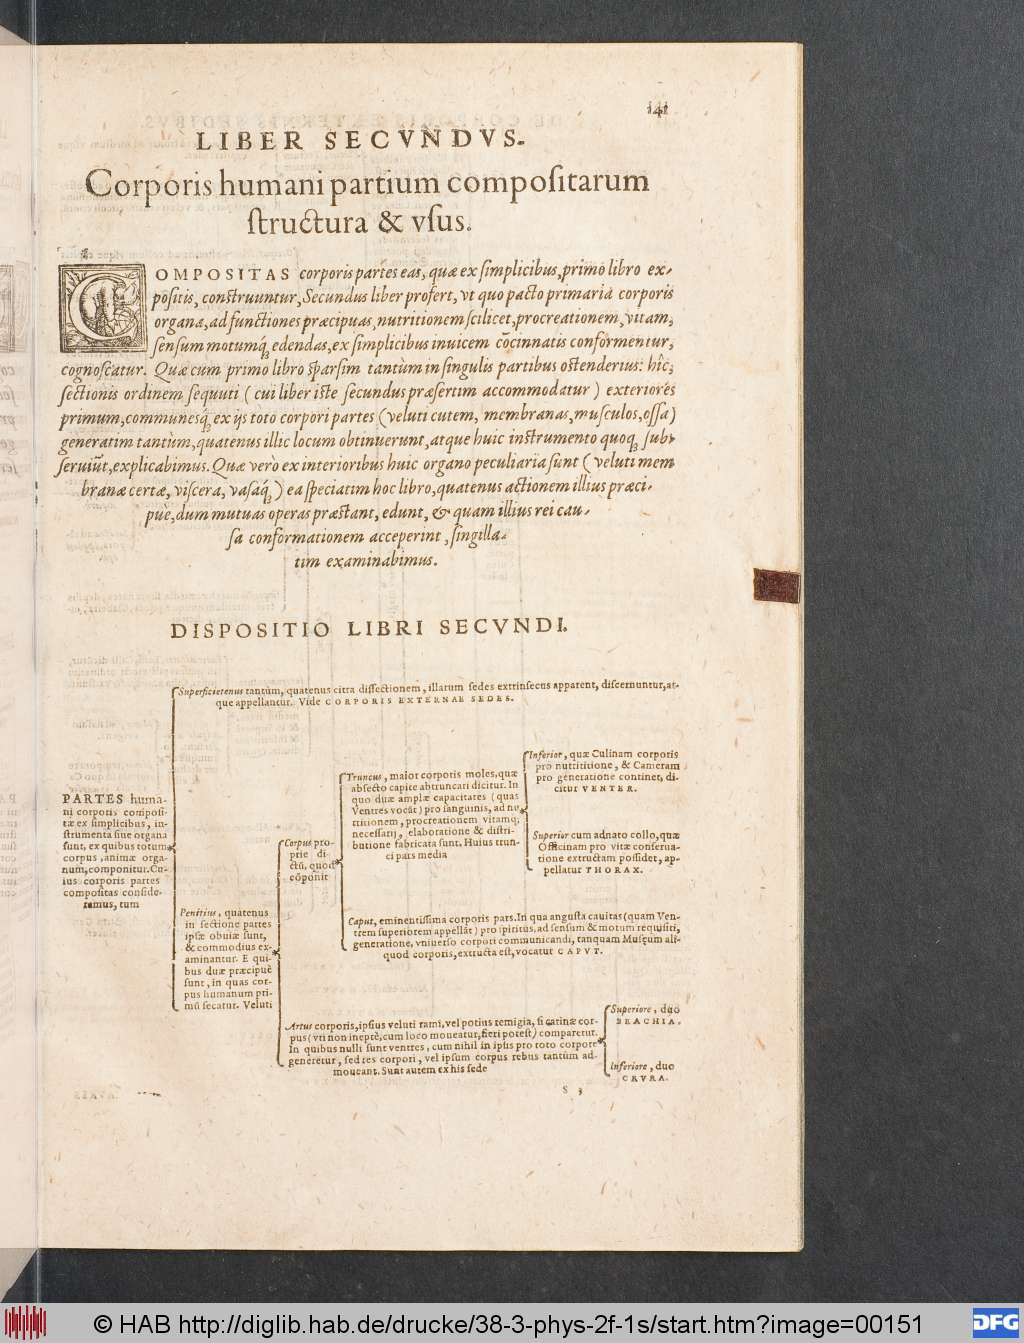 141
LIBER SECVNDVS.
Corporis humani partium compositarum
structura & vsus.
COMPOSITAS corporis partes eas, quæ ex simplicibus, primo libro ex-
positis, construuntur, Secundus liber profert, vt quo pacto primaria corporis
organa, ad functiones præcipuas, nutritionem scilicet, procreationem, vitam,
sensum motumq́; edendas, ex simplicibus inuicem cōcinnatis conformentur,
cognoscatur. Quæ cum primo libro sparsim tantùm in singulis partibus ostenderius: hîc,
sectionis ordinem sequuti (cui liber iste secundus præsertim accommodatur) exteriores
primum, communesq́; ex ijs toto corpori partes (veluti cutem, membranas, musculos, ossa)
generatim tantùm, quatenus illic locum obtinuerunt, atque huic instrumento quoq; sub-
seruiūt, explicabimus. Quæ verò ex interioribus huic organo peculiaria sunt (veluti mem
branæ certæ, viscera, vasaq́;) ea speciatim hoc libro, quatenus actionem illius præci-
puè, dum mutuas operas præstant, edunt, & quam illius rei cau-
sa conformationem acceperint, singilla-
tim examinabimus.
DISPOSITIO LIBRI SECVNDI.
PARTES huma-
ni corporis composi-
tæ ex simplicibus, in-
strumenta siue organa
sunt, ex quibus totum
corpus, animæ orga-
num, componitur. Cu-
ius corporis partes
compositas conside-
ramus, tum
Superficietenus tantùm, quatenus citra dissectionem, illarum sedes extrinsecus apparent, discernuntur, at-
que appellantur. Vide CORPORIS EXTERNAE SEDES.
Penitius, quatenus
in sectione partes
ipsæ obuiæ sunt,
& commodius ex-
aminantur. E qui-
bus duæ præcipuè
sunt, in quas cor-
pus humanum pri-
mū secatur. Veluti
Corpus pro-
prie di-
ctū, quod
cōponit
Truncus, maior corporis moles, quæ
absecto capite abtruncari dicitur. In
quo duæ amplæ capacitates (quas
Ventres vocāt) pro sanguinis, ad nu
tritionem, procreationem vitamq;
necessarij, elaboratione & distri-
butione fabricata sunt. Huius trun-
ci pars media
Inferior, quæ Culinam corporis
pro nutrititione, & Cameram
pro generatione continet, di-
citur VENTER.
Superior cum adnato collo, quæ
Officinam pro vitæ conserua-
tione extructam possidet, ap-
pellatur THORAX.
Caput, eminentissima corporis pars. In qua angusta cauitas (quam Ven-
trem superiorem appellāt) pro spiritus, ad sensum & motum requisiti,
generatione, vniuerso corpori communicandi, tanquam Musęum ali-
quod corporis, extructa est, vocatur CAPVT.
Artus corporis, ipsius veluti rami, vel potius remigia, si carinæ cor-
pus (vti non ineptè, cum loco moueatur, fieri potest) comparetur.
In quibus nulli sunt ventres, cum nihil in ipsis pro toto corpore
generetur, sed res corpori, vel ipsum corpus rebus tantùm ad-
moueant. Sunt autem ex his sede
Superiore, duo
BRACHIA.
Inferiore, duo
CRVRA.
S 3
© HAB http://diglib.hab.de/drucke/38-3-phys-2f-1s/start.htm?image=00151
DFG